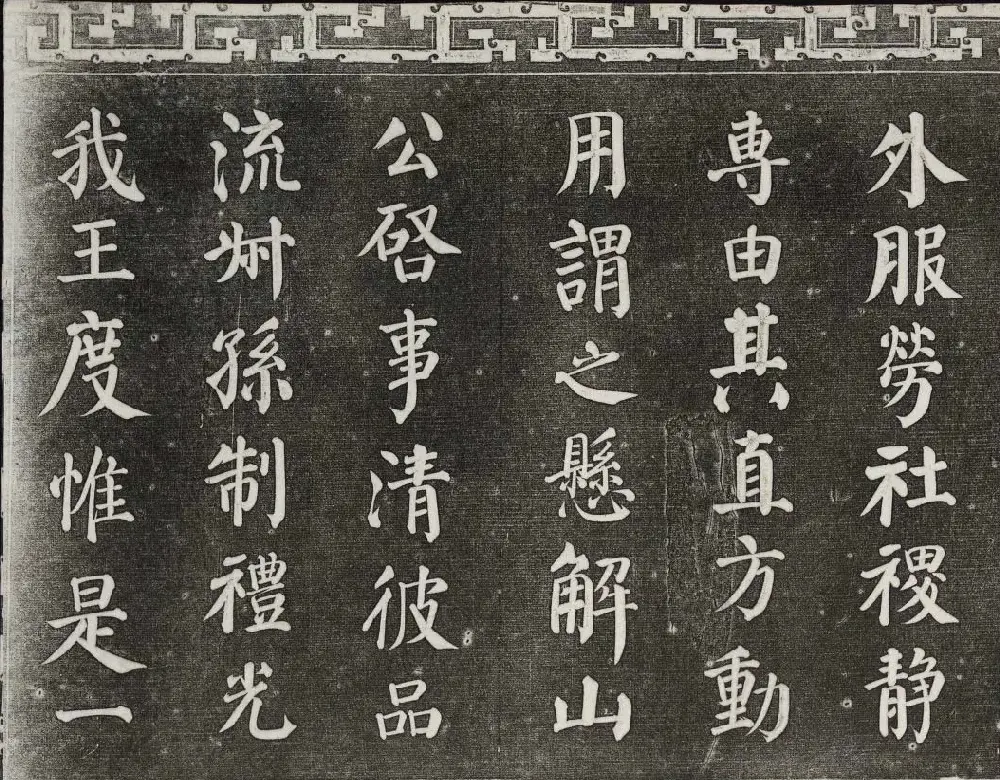 外服勞社稷静
専由其直方動
用謂之懸解山
公啓事清彼品
流叔孫制禮光
我王度惟是一